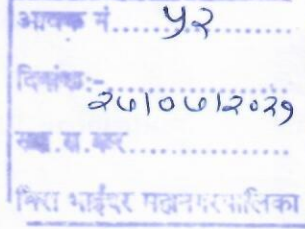 आवक नं............ ५२
दिनांक:-........................
२७|०७|२०२१
मिरा भाईंदर महानगरपालिका